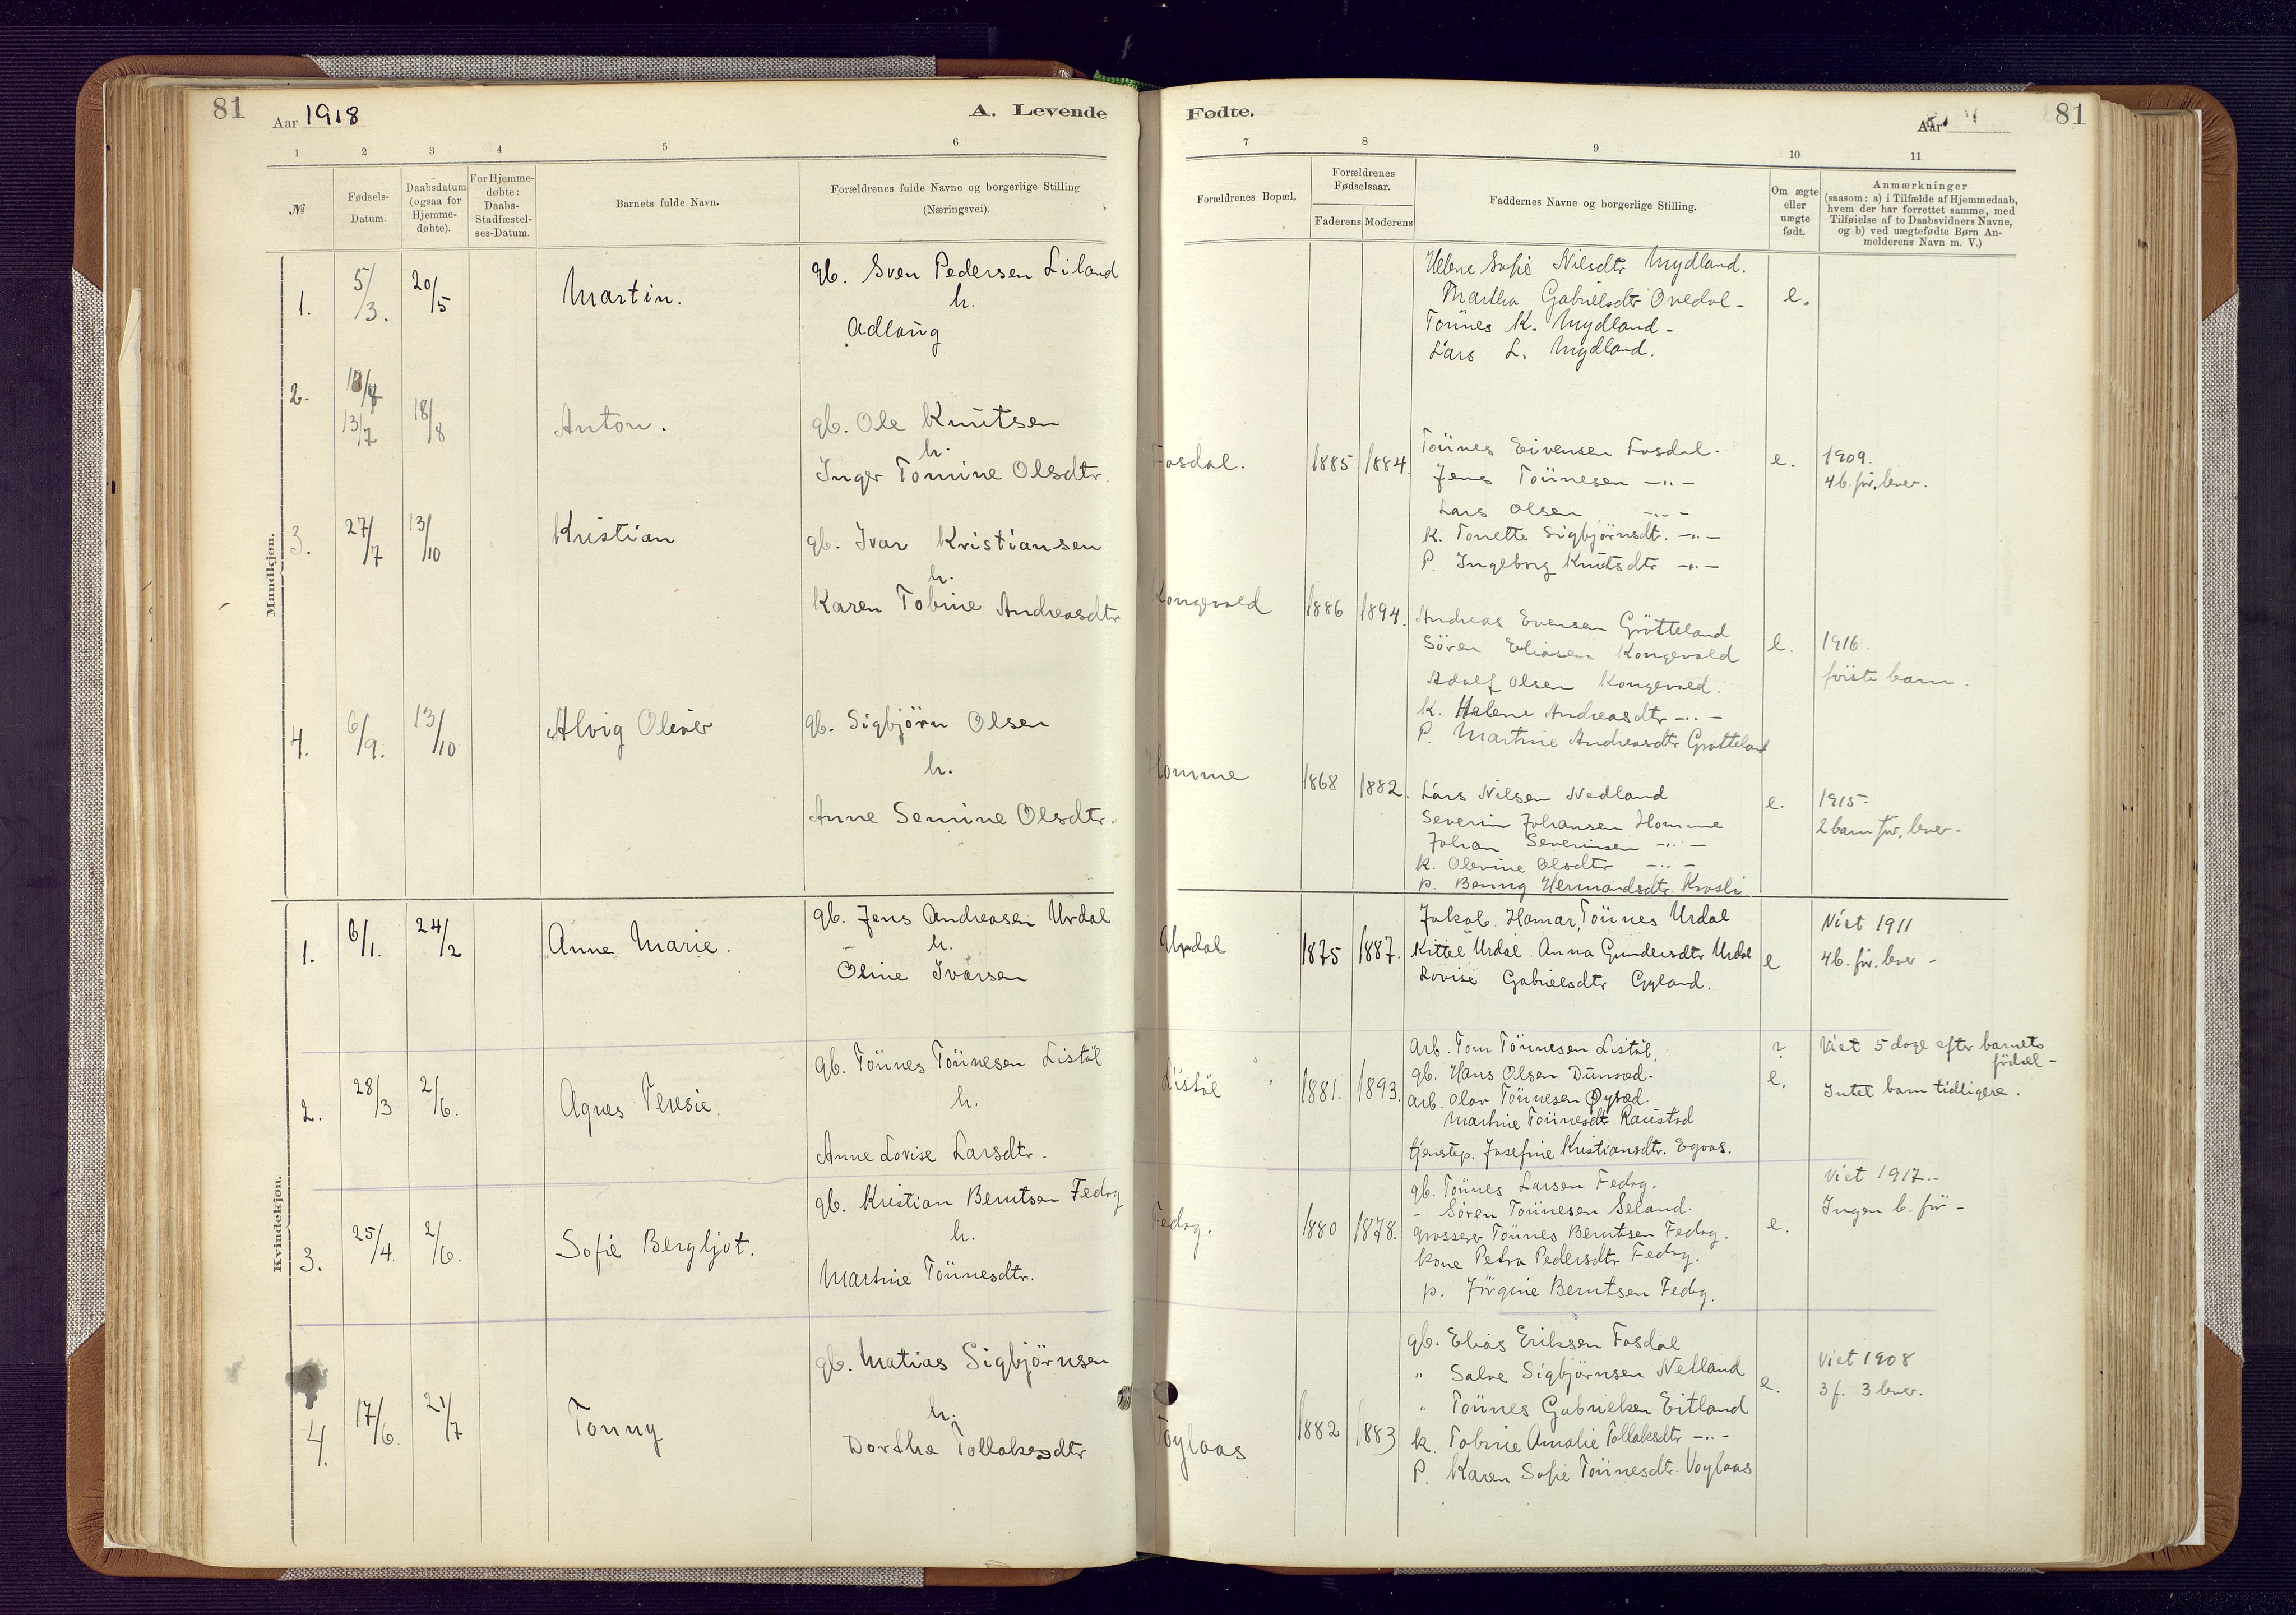 81
Aar 1918
A. Levende
1 2 3 4 5 6
№
Fødsels-Datum.
Daabsdatum (ogsaa for Hjemme-døbte).
For Hjemme-døbte: Daabs-Stadfæstel-ses-Datum.
Barnets fulde Navn.
Forældrenes fulde Navne og borgerlige Stilling
(Næringsvei).
Mandkjøn.
1. 5/3. 20/5 Martin.
gb. Sven Pedersen Liland
h.
Adlaug
2. 18/8
13/7 18/8 Anton.
gb. Ole Knutsen
h.
Inger Tomine Olsdtr.
3. 27/7 13/10 Kristian
gb. Ivar Kristiansen
h.
Karen Tobine Andreasdtr
4. 6/9. 13/10 Alvig Oliver
gb. Sigbjörn Olsen
h.
Anne Semine Olsdtr.
Kvindekjøn.
1. 6/1. 24/2 Anne Marie.
gb. Jens Andreasen Urdal
h.
Oline Ivarsen
2. 28/3 2/6. Agnes Teresie.
gb. Tönnes Tönnesen Listöl
h.
Anne Lovise Larsdtr.
3. 25/4. 2/6. Sofie Bergljot.
gb. Kristian Berntsen Fedog
h.
Martine Tönnesdtr.
4. 17/6. 21/7 Tonny
gb. Matias Sigbjörnsen
h.
Dorthe Tollaksdtr
Fødte.
Aar
81
7 8 9 10 11
Forældrenes Bopæl.
Forældrenes Fødselsaar.
Faderens Moderens
Faddernes Navne og borgerlige Stilling.
Om ægte eller uægte født.
Anmærkninger
(saasom: a) i Tilfælde af Hjemmedaab,
hvem der har forrettet samme, med
Tilføielse af to Daabsvidners Navne,
og b) ved uægtefødte Børn An-
melderens Navn m. V.)
Helene Sofie Nilsdtr Mydland.
Martha Gabrielsdtr Ovedal - e.
Tönnes K. Mydland -
Lars L. Mydland.
Fosdal. 1885 1884
Tönnes Eivensen Fosdal. e. 1909.
Jens Tönnesen -"- 4 b. för, lever.
Lars Olsen -"-
K. Tonette Sigbjörnsdt. -"-
P. Ingeborg Knutsdtr -"-
Kongevold 1886 1894.
Andreas Evensen Grötteland
Sören Eliasen Kongevold e. 1916.
Adolf Olsen Kongevold. förste barn.
K. Helene Andreasdtr -"-
P. Martine Andreasdtr Grötteland
Homme 1868 1882.
Lars Nilsen Nedland e. 1915.
Severin Johansen Homme 2 barn för, lever.
Johan Severinsen -"-
K. Olevine Olsdtr -"-
p. Benny Hermandsdtr. Krosli
Urdal 1875 1887.
Jakob Hamar, Tönnes Urdal Viet 1911
Kittel Urdal. Anna Gundersdtr Urdal e 4 b. för, lever -
Lovise Gabrielsdtr Gyland.
Listöl 1881. 1893.
Arb. Tom Tönnesen Listöl, ? Viet 5 dage efter barnets födsel -
gb. Hans Olsen Dunsæd. e.
arb. Olav Tönnesen Øysæd. Intet barn tidligere.
Martine Tönnesdt Raustad
tjenstep. Josefine Kristiansdtr. Egoas.
Fedog. 1880 1878.
gb. Tönnes Larsen Fedog. Viet 1917.-
- Sören Tönnesen Seland. e. Ingen b. för -
grosserer Tönnes Berntsen Fedog.
kone Petra Pedersdtr Fedog.
p. Jörgine Berntsen Fedog.
Voglaas 1882 1883
gb. Elias Eriksen Fosdal
" Salve Sigbjörnsen Netland e. Viet 1908
" Tönnes Gabrielsen Eitland 3 f. 3 lever.
K. Tobine Amalie Tollaksdtr -"-
P. Karen Sofie Tönnesdtr. Voglaas